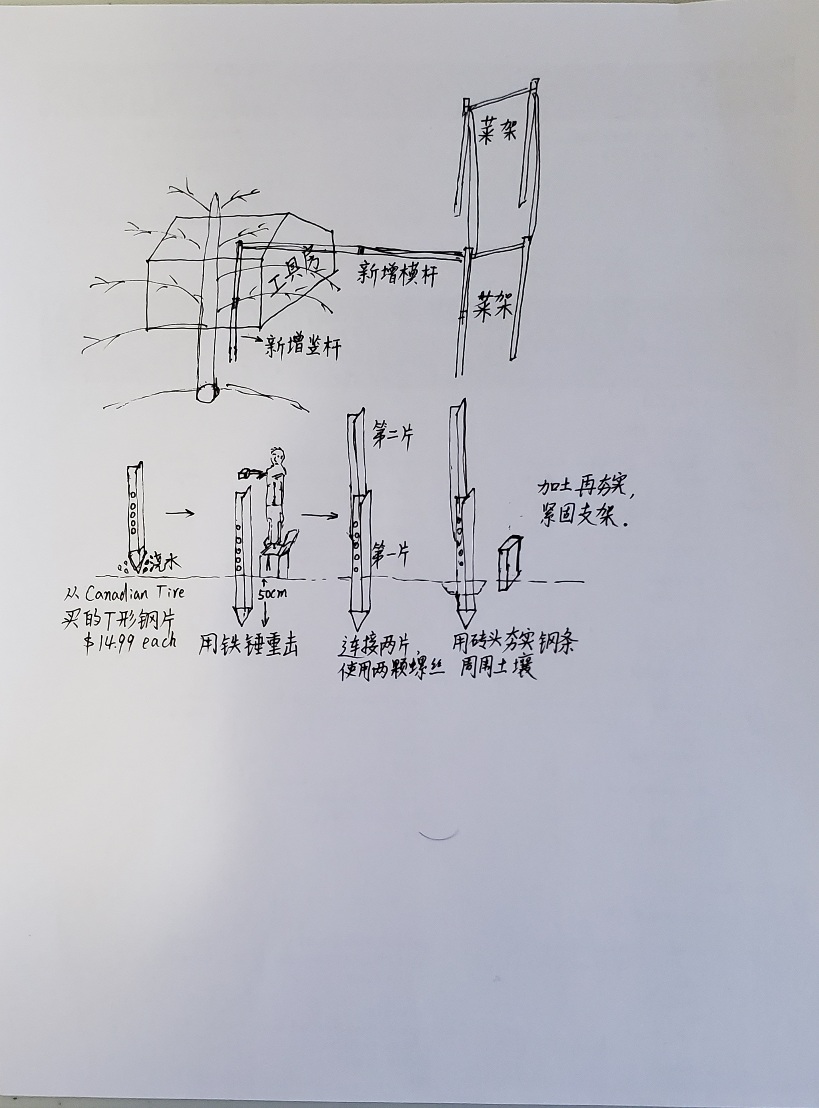 菜架
工具房
新增横杆
菜架
新增竖杆
第二片
第一片
加土再夯实,
紧固支架.
浇水
50cm
从 Canadian Tire
买的T形钢片
$14.99 each
用铁锤重击
连接两片,
使用两颗螺丝
用砖头夯实钢条
周周土壤